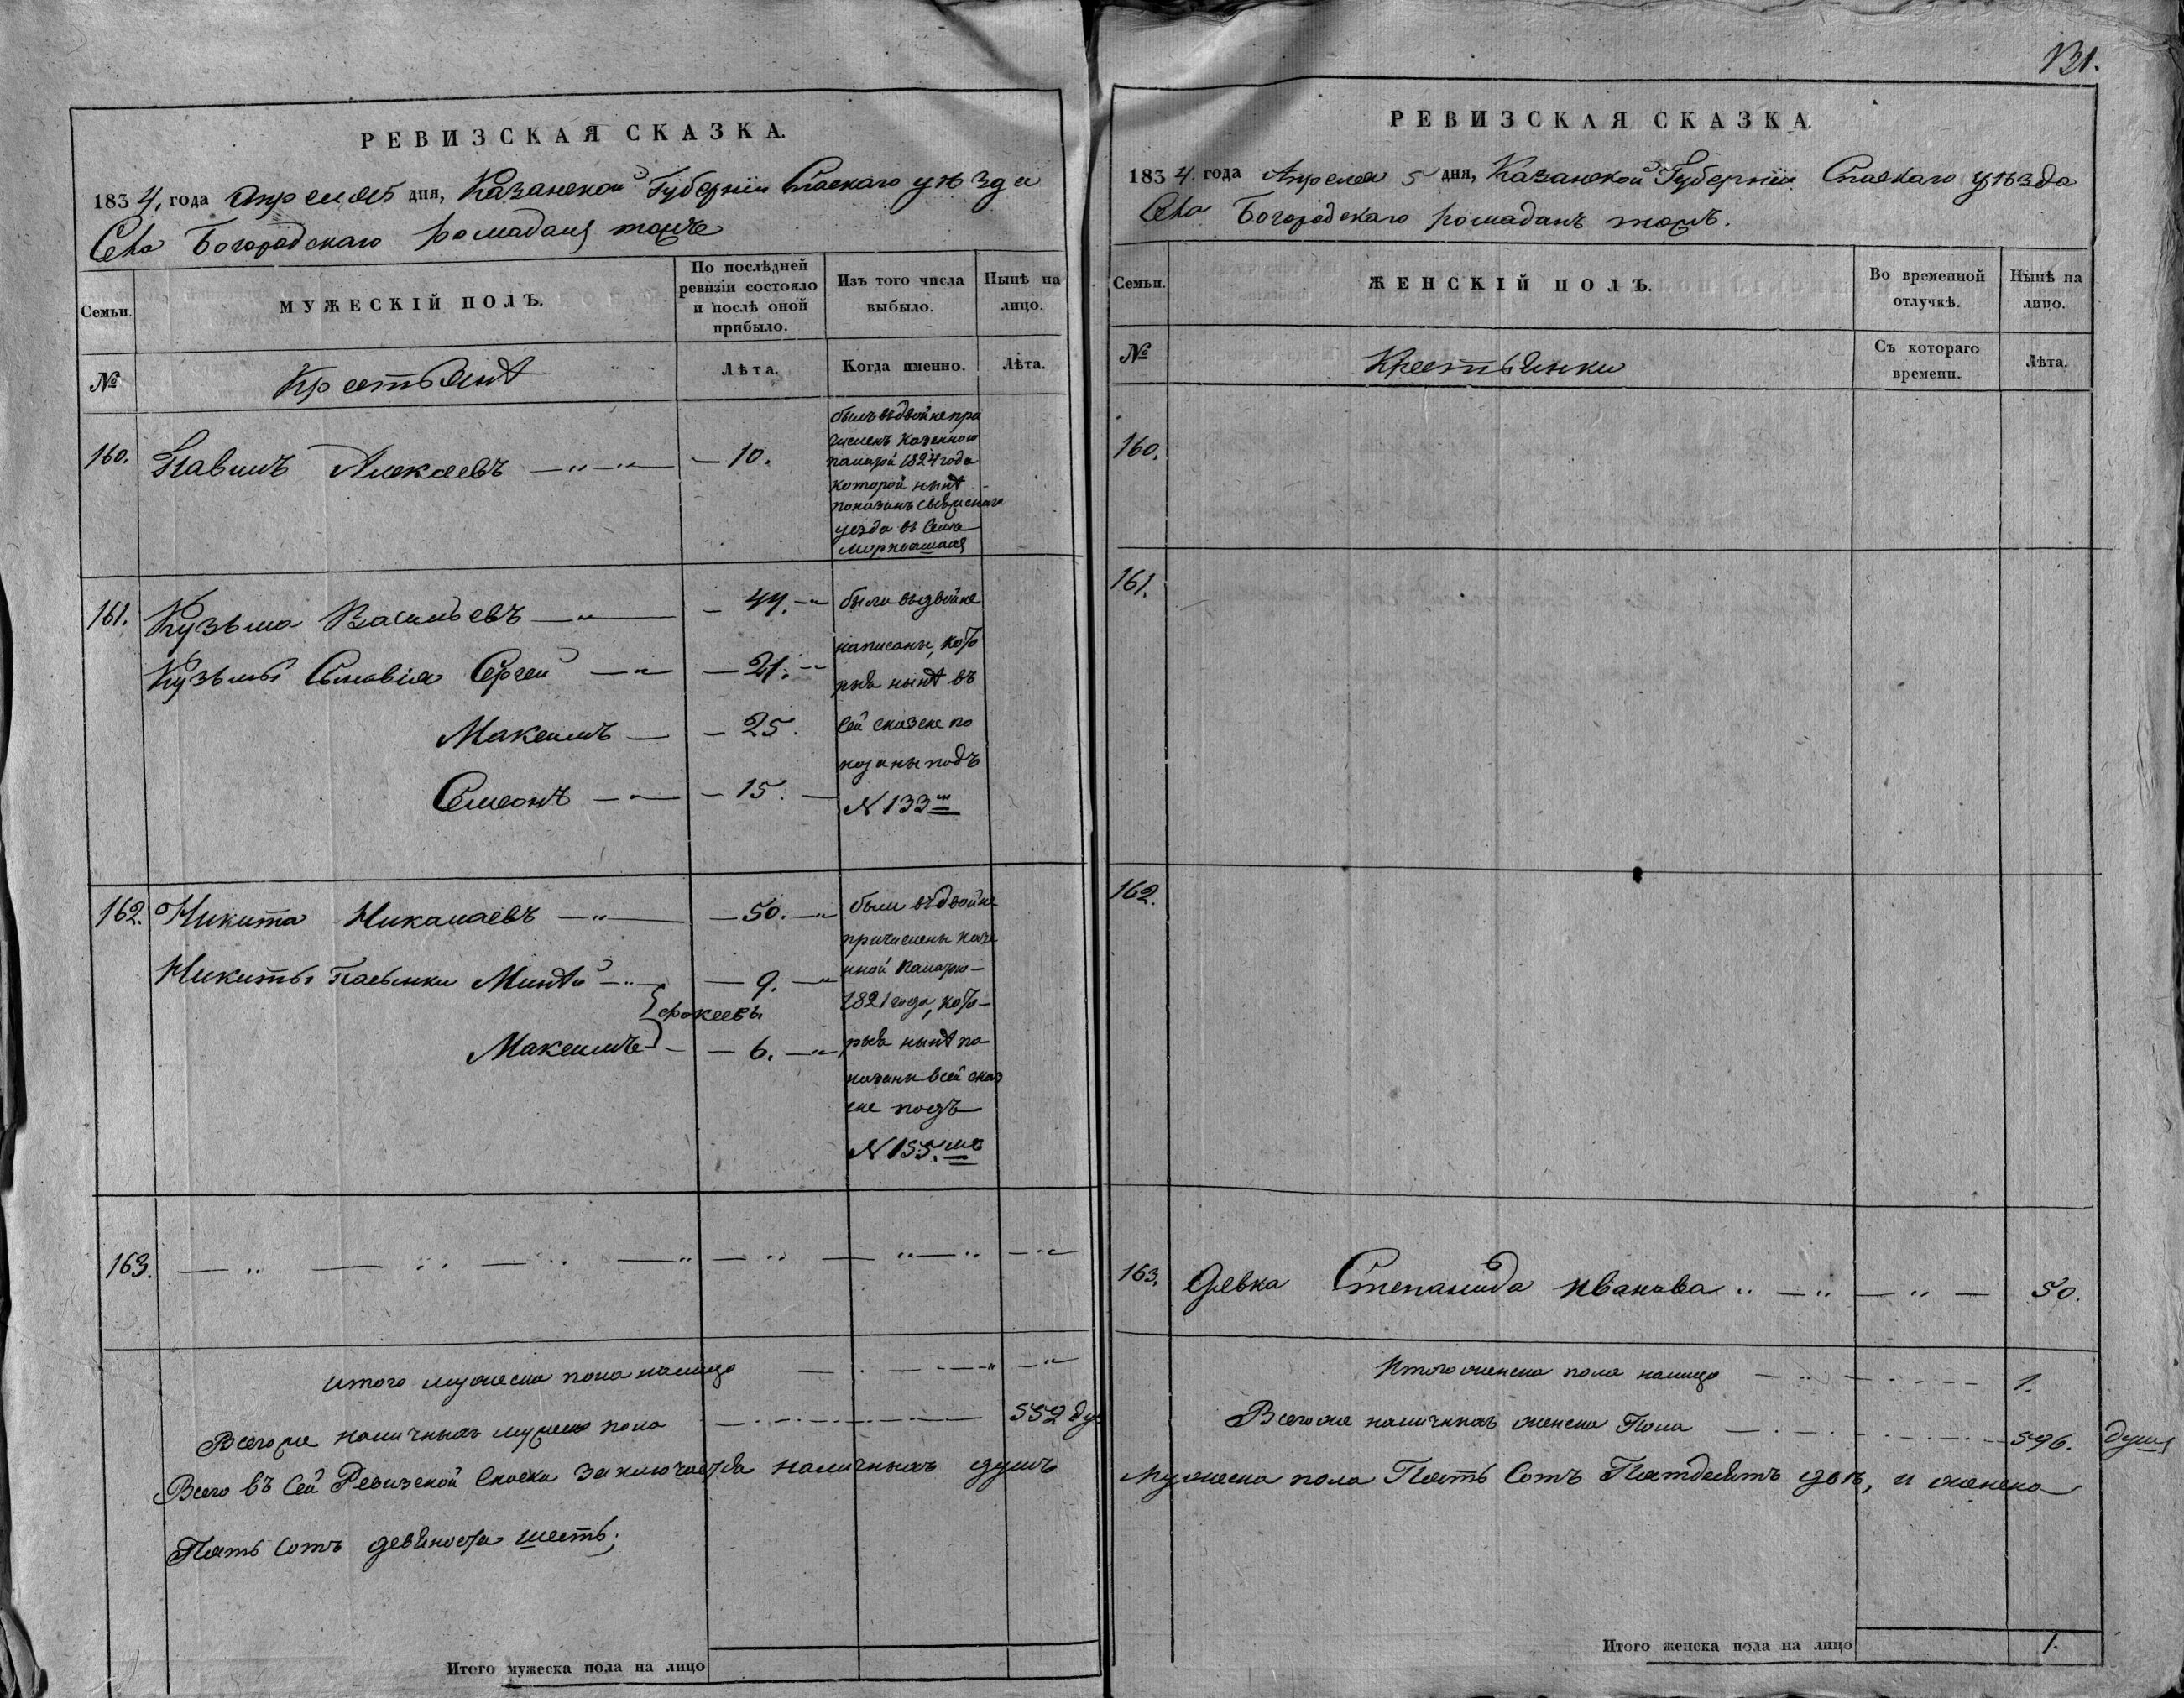 РЕВИЗСКАЯ СКАЗКА.
1834, года Апреля 5 дня, Казанской Губернїи Спаскаго уѣзда
Села Богородскаго Ромадань тожъ
Семьи.
МУЖЕСКІЙ ПОЛЪ.
По послѣдней
ревизіи состояло
и послѣ оной
прибыло.
Изъ того числа
выбыло.
Нынѣ на
лицо.
№
Крестьянѣ
Лѣта.
Когда именно.
Лѣта.
160. Павилъ Алексеевъ — 10.
былъ въдвойне при
численъ Казенною
палатой 1824 года
которой нынѣ
показанъ
уезда въ Селе
161. Кузьма Васильевъ — 44.
Кузьмы Сыновія Сергей — 21.
Максимъ — 25.
Семенъ — 15.
были въдвойне
написаны, кото
рыя нынѣ въ
сей сказке по
казаны подъ
N 133 мъ
162. Никита Никалаевъ — 50.
Никиты Пасынки Минѣй — 9.
Фокеевы
Максимъ — 6.
были въдвойне
причислены Казе
нной Палатою
1821 года, кото
рыя нынѣ по
казаны всей сказ
ке подъ
N 155. мъ
163.
итого мужеска пола налицо
Всего же наличныхъ мужеска пола 552 ду
Всего въ Сей Ревизской Сказки Заключается наличныхъ душъ
Пять сотъ девяноста шесть.
Итого мужеска пола на лицо
131.
РЕВИЗСКАЯ СКАЗКА.
1834. года Апреля 5 дня, Казанской Губернїи Спаскаго уѣзда
Села Богородскаго Ромаданъ тожъ.
Семьи.
ЖЕНСКІЙ ПОЛЪ.
Во временной
отлучкѣ.
Нынѣ на
лицо.
№
Крестьянки
Съ котораго
времени.
Лѣта.
160.
161.
162.
163. Девка Степанида Иванава 50.
Итого женска пола налицо 1.
Всего же наличныхъ женска Пола 596. душъ
мужеска пола Пять Сотъ Пятдесятъ двѣ, и женска
Итого женска пола на лицо 1.